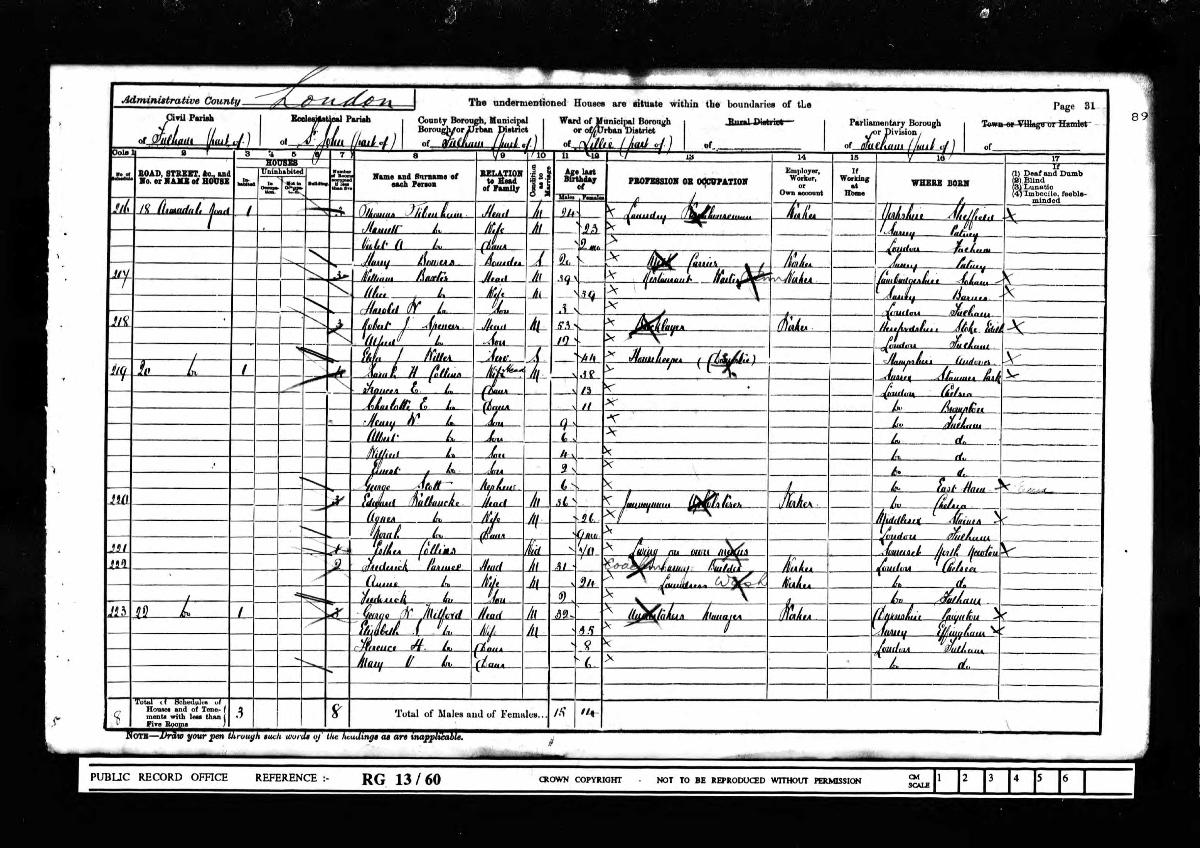 Administrative County London
The undermentioned Houses are situate within the boundaries of the
Page 31
89
Civil Parish
of Fulham (part of)
Ecclesiastical Parish
of St John (part of)
County Borough, Municipal Borough, or Urban District
of Fulham (part of)
Ward of Municipal Borough or of Urban District
of Lillie (part of)
Rural District
of
Parliamentary Borough or Division
of Fulham (part of)
Town or Village or Hamlet
of
Cols 1 2 3 4 5 6 7 8 9 10 11 12 13 14 15 16 17
No. of Schedule
ROAD, STREET, &c., and No. or NAME of HOUSE
HOUSES
Inhabited
Uninhabited
In Occupation
Not in Occupation
Building
Number of Rooms occupied if less than five
Name and Surname of each Person
RELATION to Head of Family
Condition as to Marriage
Age last Birthday of
Males Females
PROFESSION OR OCCUPATION
Employer, Worker, or Own account
If Working at Home
WHERE BORN
If
(1) Deaf and Dumb
(2) Blind
(3) Lunatic
(4) Imbecile, feeble-minded
216 18 Armadale Road 1 Thomas Head M 24 Laundry Worker Yorkshire Sheffield
Harriett do Wife M 23 Surrey Putney
Violet A do Daur 2 mo London Fulham
Harry Bowers Boarder S 20 Carrier Worker Surrey Putney
217 3 William Baxter Head M 39 Restaurant Waiter Worker Cambridgeshire Soham
Alice do Wife M 39 Surrey Barnes
Harold W do Son 3 London Fulham
218 3 Robert J Spencer Head M 53 Bricklayer Worker Stoke Edith
Alfred do Son 17 London Fulham
Eliza J Serv. S 44 Housekeeper (Domestic) Hampshire Andover
219 20 do Sarah H Collins Wife Head M 38 Sussex Stanmer Park
Frances E do Daur 13 London Chelsea
Charlotte E do Daur 11 do Brompton
Henry W do Son 9 do Fulham
Albert do Son 6 do do
Wilfred do Son 4 do do
Ernest do Son 2 do do
George Scott Nephew 6 do East Ham
220 3 Edward Head M 36 Journeyman Upholsterer Worker do Chelsea
Agnes do Wife M 26 Middlesex Staines
Norah do Daur 9 mo London Fulham
221 Esther Collins Wid 70 Living on own means Somerset North Newton
222 2 Frederick Head M 31 Builder Worker London Chelsea
Annie do Wife M 24 Laundress Wash Worker do do
Frederick do Son 2 do Fulham
223 22 do 1 George W Milford Head M 32 Undertakers Manager Worker Devonshire Paignton
Elizabeth S do Wife M 35 Surrey Effingham
Florence H do Daur 8 London Fulham
Mary V do Daur 6 do do
8
Total of Schedules of Houses and of Tenements with less than Five Rooms
3
8
Total of Males and of Females... 15 14
NOTE—Draw your pen through such words of the headings as are inapplicable.
PUBLIC RECORD OFFICE REFERENCE :- RG 13/60 CROWN COPYRIGHT - NOT TO BE REPRODUCED WITHOUT PERMISSION CM SCALE 1 2 3 4 5 6